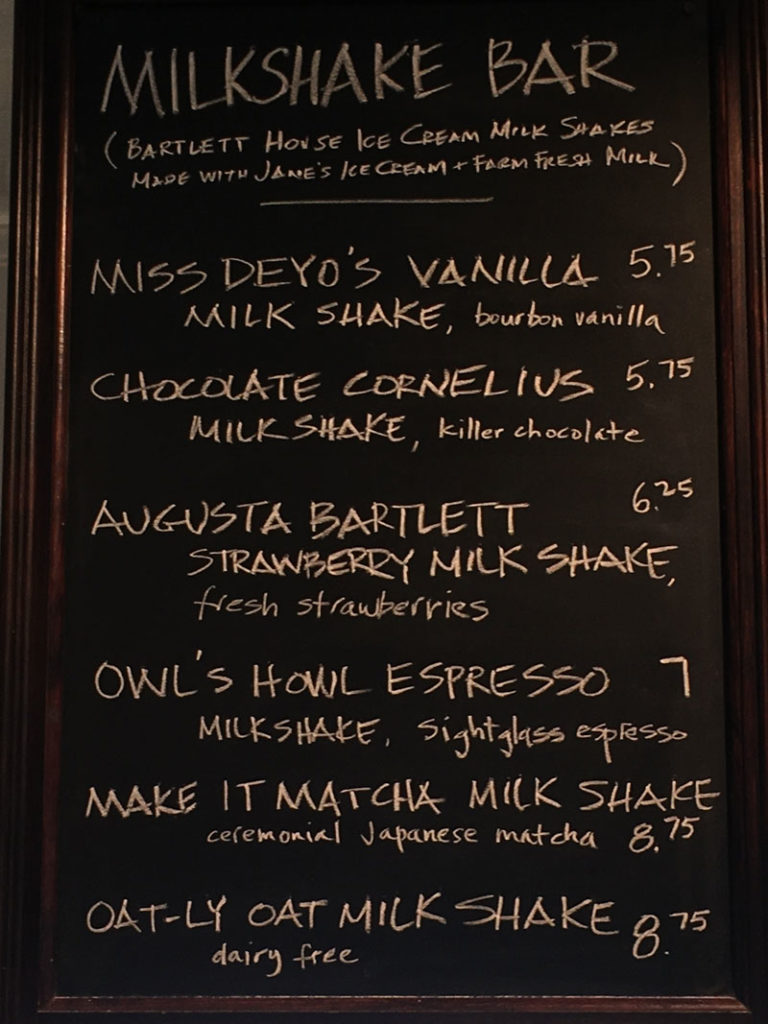 MILKSHAKE BAR
(BARTLETT HOUSE ICE CREAM MILK SHAKES
MADE WITH JANE'S ICE CREAM + FARM FRESH MILK)
MISS DEYO'S VANILLA 5.75
MILK SHAKE, bourbon vanilla
CHOCOLATE CORNELIUS 5.75
MILKSHAKE, killer chocolate
AUGUSTA BARTLETT 6.25
STRAWBERRY MILK SHAKE,
fresh strawberries
OWL'S HOWL ESPRESSO 7
MILKSHAKE, sightglass espresso
MAKE IT MATCHA MILK SHAKE
ceremonial Japanese matcha 8.75
OAT-LY OAT MILK SHAKE 8.75
dairy free